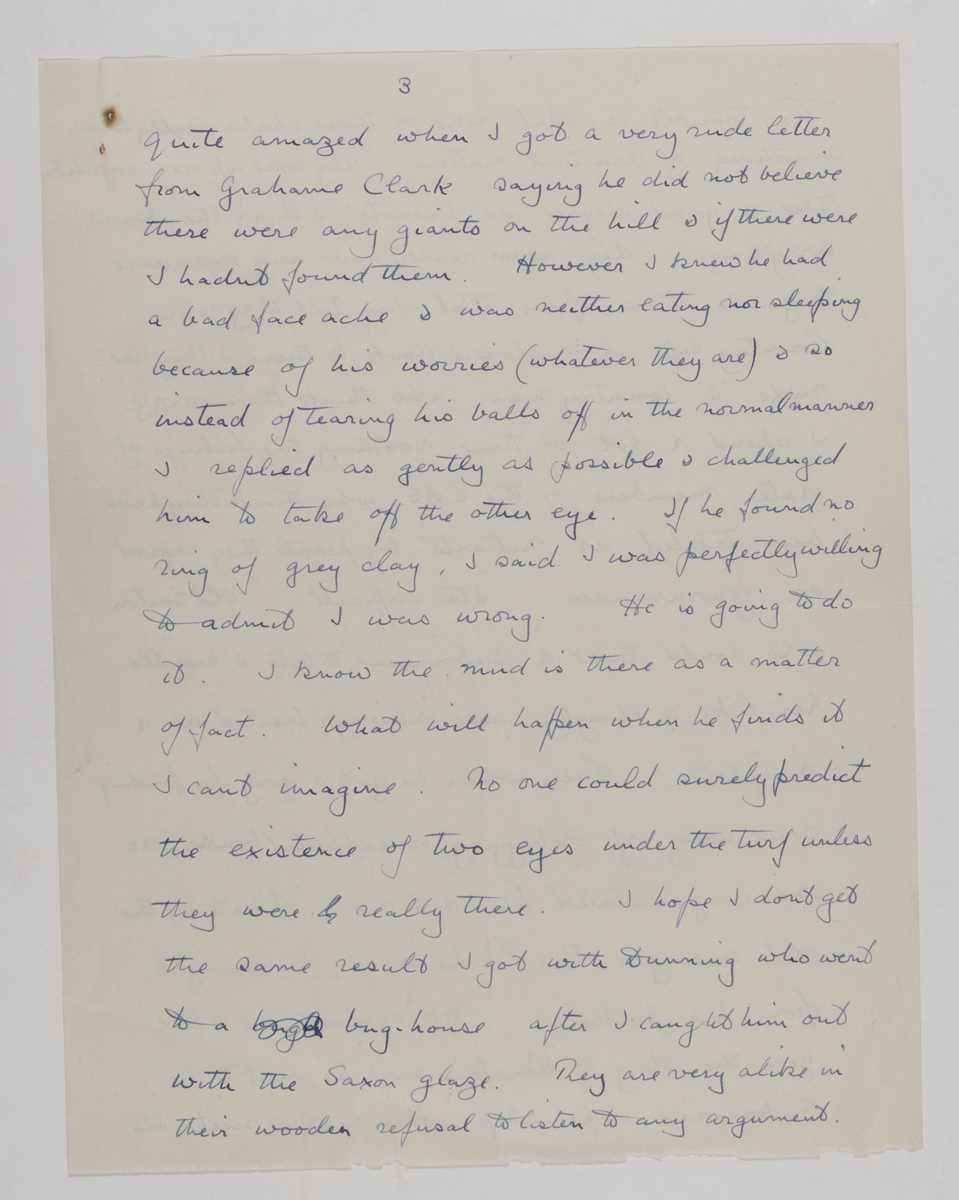 3
quite amazed when I got a very rude letter
from Grahame Clark saying he did not believe
there were any giants on the hill & if there were
I hadnt found them. However I knew he had
a bad face ache & was neither eating nor sleeping
because of his worries (whatever they are) & so
instead of tearing his balls off in the normal manner
I replied as gently as possible & challenged
him to take off the other eye. If he found no
ring of grey clay, I said I was perfectly willing
to admit I was wrong. He is going to do
it. I know the mud is there as a matter
of fact. What will happen when he finds it
I cant imagine. No one could surely predict
the existence of two eyes under the turf unless
they were really there. I hope I dont get
the same result I got with Dunning who went
to a bug-house after I caught him out
with the Saxon glaze. They are very alike in
their wooden refusal to listen to any argument.